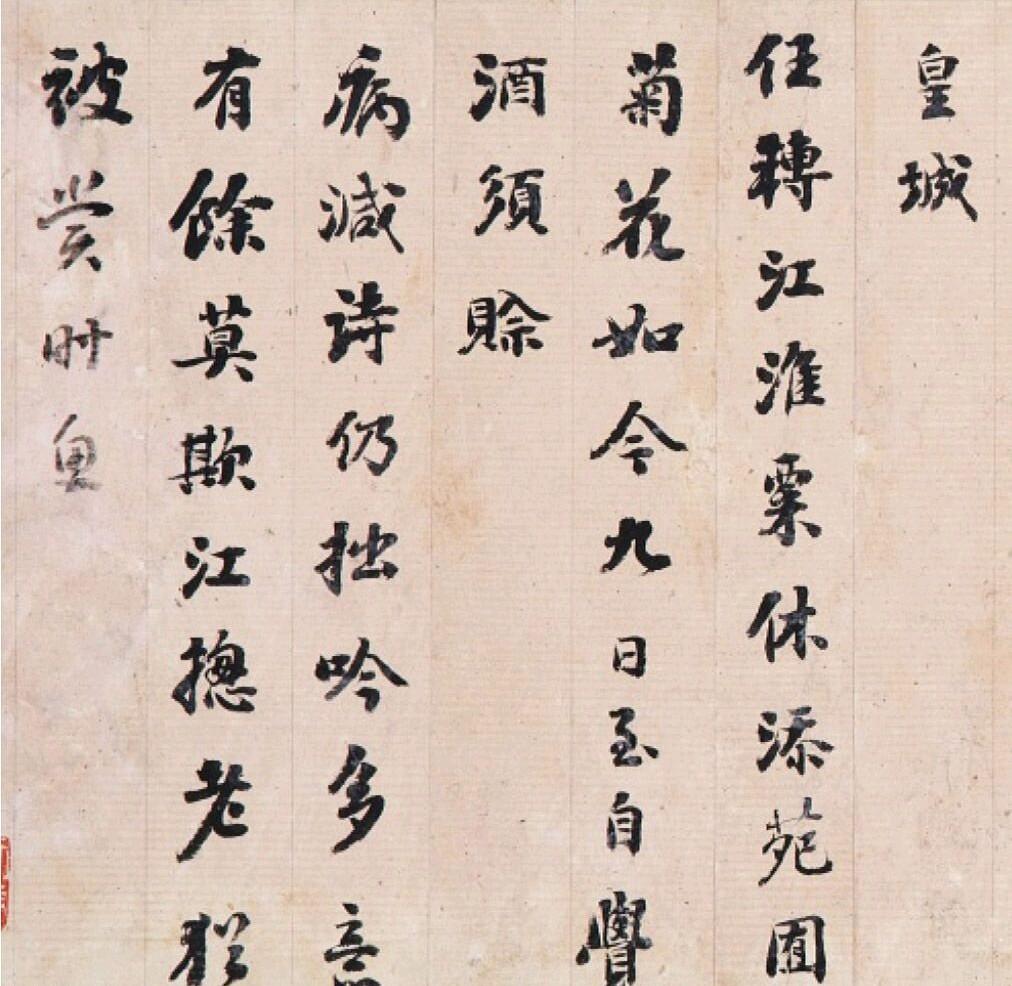 皇城
任轉江淮粟休添苑囿
菊花如今九日至自覺
酒須賒
病減詩仍拙吟多意
有餘莫欺江摠老猶
被賞时魚